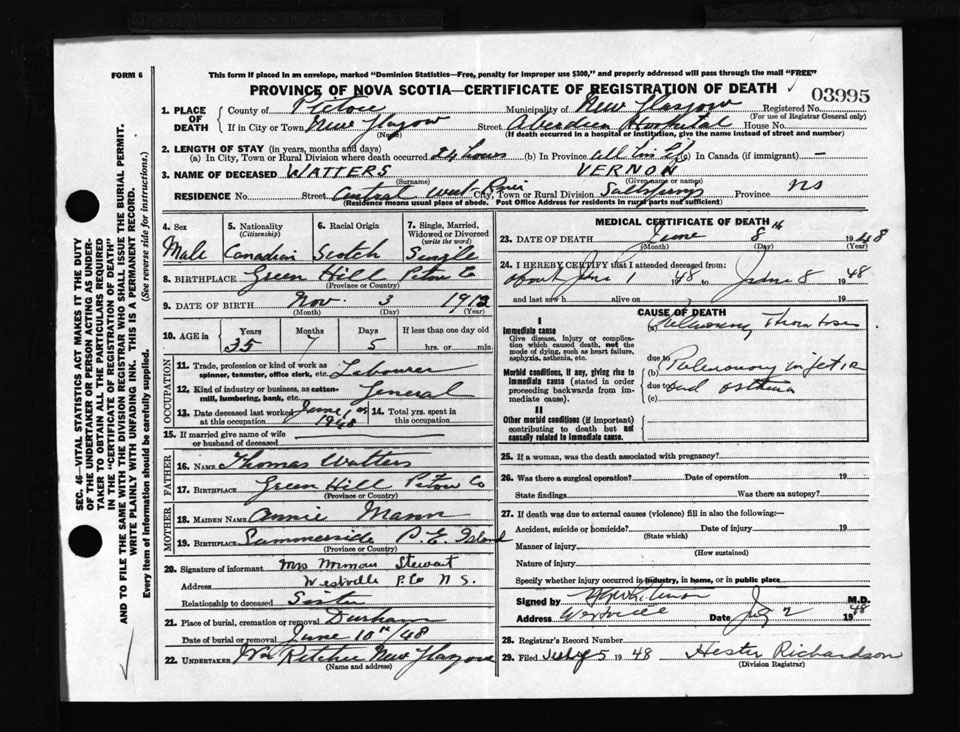 FORM 6
This form if placed in an envelope, marked "Dominion Statistics—Free, penalty for improper use $300," and properly addressed will pass through the mail "FREE"
PROVINCE OF NOVA SCOTIA—CERTIFICATE OF REGISTRATION OF DEATH
03995
1. PLACE OF DEATH
County of Pictou Municipality of New Glasgow Registered No.
(For use of Registrar General only)
If in City or Town New Glasgow Street Aberdeen Hospital House No.
(Name) (If death occurred in a hospital or institution, give name instead of street and number)
2. LENGTH OF STAY (in years, months and days)
(a) In City, Town or Rural Division where death occurred 24 hours (b) In Province All his life (c) In Canada (if immigrant) —
3. NAME OF DECEASED WATTERS VERNON
(Surname) (Given name or names)
RESIDENCE No. Street Central West River City, Town or Rural Division Province NS
(Residence means usual place of abode. Post Office Address for residents in rural parts not sufficient)
4. Sex Male
5. Nationality (Citizenship) Canadian
6. Racial Origin Scotch
7. Single, Married, Widowed or Divorced (write the word) Single
8. BIRTHPLACE Green Hill Pictou Co
(Province or Country)
9. DATE OF BIRTH Nov. 3 1912
(Month) (Day) (Year)
10. AGE in Years Months Days If less than one day
35 7 5 hrs. or min.
OCCUPATION
11. Trade, profession or kind of work as spinner, teamster, office clerk, etc. Labourer
12. Kind of industry or business, as cotton-mill, lumbering, bank, etc. General
13. Date deceased last worked at this occupation June 1, 1948
14. Total yrs. spent in this occupation
15. If married give name of wife or husband of deceased
FATHER
16. NAME Thomas Watters
17. BIRTHPLACE Green Hill Pictou Co
(Province or Country)
MOTHER
18. MAIDEN NAME Annie Mann
19. BIRTHPLACE Summerside P. E. Island
(Province or Country)
20. Signature of informant Mrs Norman Stewart
Address Westville P.Co N S.
Relationship to deceased Sister
21. Place of burial, cremation or removal Durham
Date of burial or removal June 10th/48
22. UNDERTAKER Wm Ritchie New Glasgow
(Name and address)
MEDICAL CERTIFICATE OF DEATH
23. DATE OF DEATH June 8th 1948
(Month) (Day) (Year)
24. I HEREBY CERTIFY that I attended deceased from:
about June 1 1948 to June 8 1948
and last saw h alive on 19
CAUSE OF DEATH
I
Immediate cause
Give disease, injury or complication which caused death, not the mode of dying, such as heart failure, asphyxia, asthenia, etc.
(a) Pulmonary Thrombosis
due to
Morbid conditions, if any, giving rise to immediate cause (stated in order proceeding backwards from immediate cause).
(b) Pulmonary
due to and asthma
(c)
II
Other morbid conditions (if important) contributing to death but not causally related to immediate cause.
25. If a woman, was the death associated with pregnancy?
26. Was there a surgical operation? Date of operation 19
State findings Was there an autopsy?
27. If death was due to external causes (violence) fill in also the following:—
Accident, suicide or homicide? Date of injury 19
(State which)
Manner of injury
(How sustained)
Nature of injury
Specify whether injury occurred in industry, in home, or in public place
Signed by M.D.
Address Westville Date July 2 1948
28. Registrar's Record Number
29. Filed July 5 1948 Hester Richardson
(Division Registrar)
SEC. 46—VITAL STATISTICS ACT MAKES IT THE DUTY
OF THE UNDERTAKER OR PERSON ACTING AS UNDER-
TAKER TO OBTAIN ALL THE PARTICULARS REQUIRED
IN THE "CERTIFICATE OF REGISTRATION OF DEATH"
AND TO FILE THE SAME WITH THE DIVISION REGISTRAR WHO SHALL ISSUE THE BURIAL PERMIT.
WRITE PLAINLY WITH UNFADING INK. THIS IS A PERMANENT RECORD.
Every item of information should be carefully supplied. (See reverse side for instructions.)